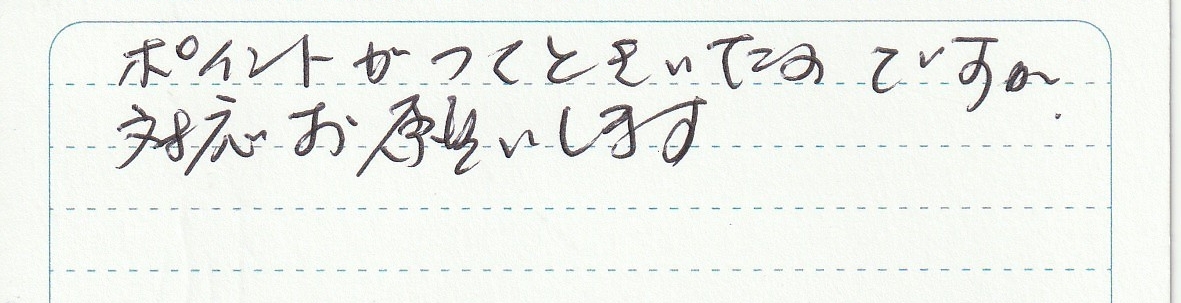 ポイントがつくときいたのですが
対応お願いします